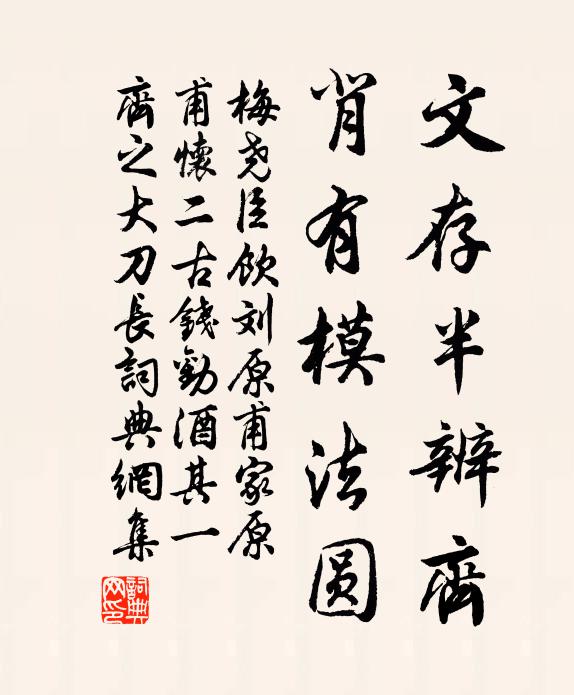 文存半辨齊
背有模法圆
梅尧臣飲刘原甫家原
甫懷二古錢勸酒其一
齊之大刀長詞典網集
詞典网印